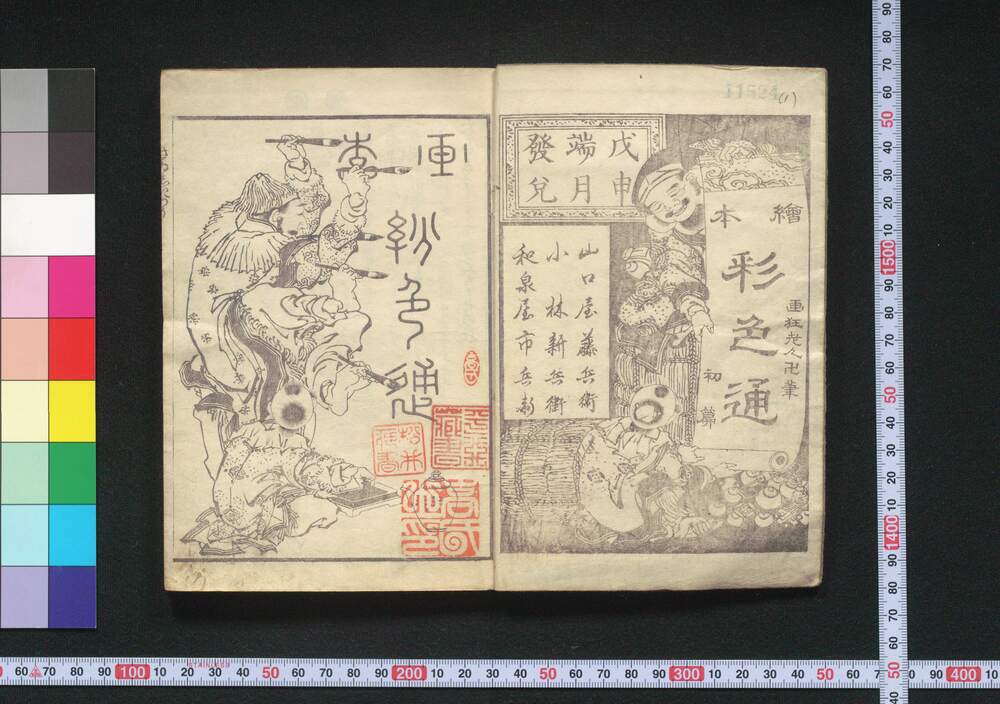 11524(1)
戊申
端月
發兌
繪本
彩色通
画狂老人卍筆
初
山口屋藤兵衛
小林新兵衛
和泉屋市兵衛
画本
彩色通
STAINLESS
60 70 80 90 100 10 20 30 40 50 60 70 80 90 200 10 20 30 40 50 60 70 80 90 300 10 20 30 40 50 60 70 80 90 400 10
90 80 70 60 50 40 30 20 10 1500 90 80 70 60 50 40 30 20 10 1400 90 80 70 60 50 40